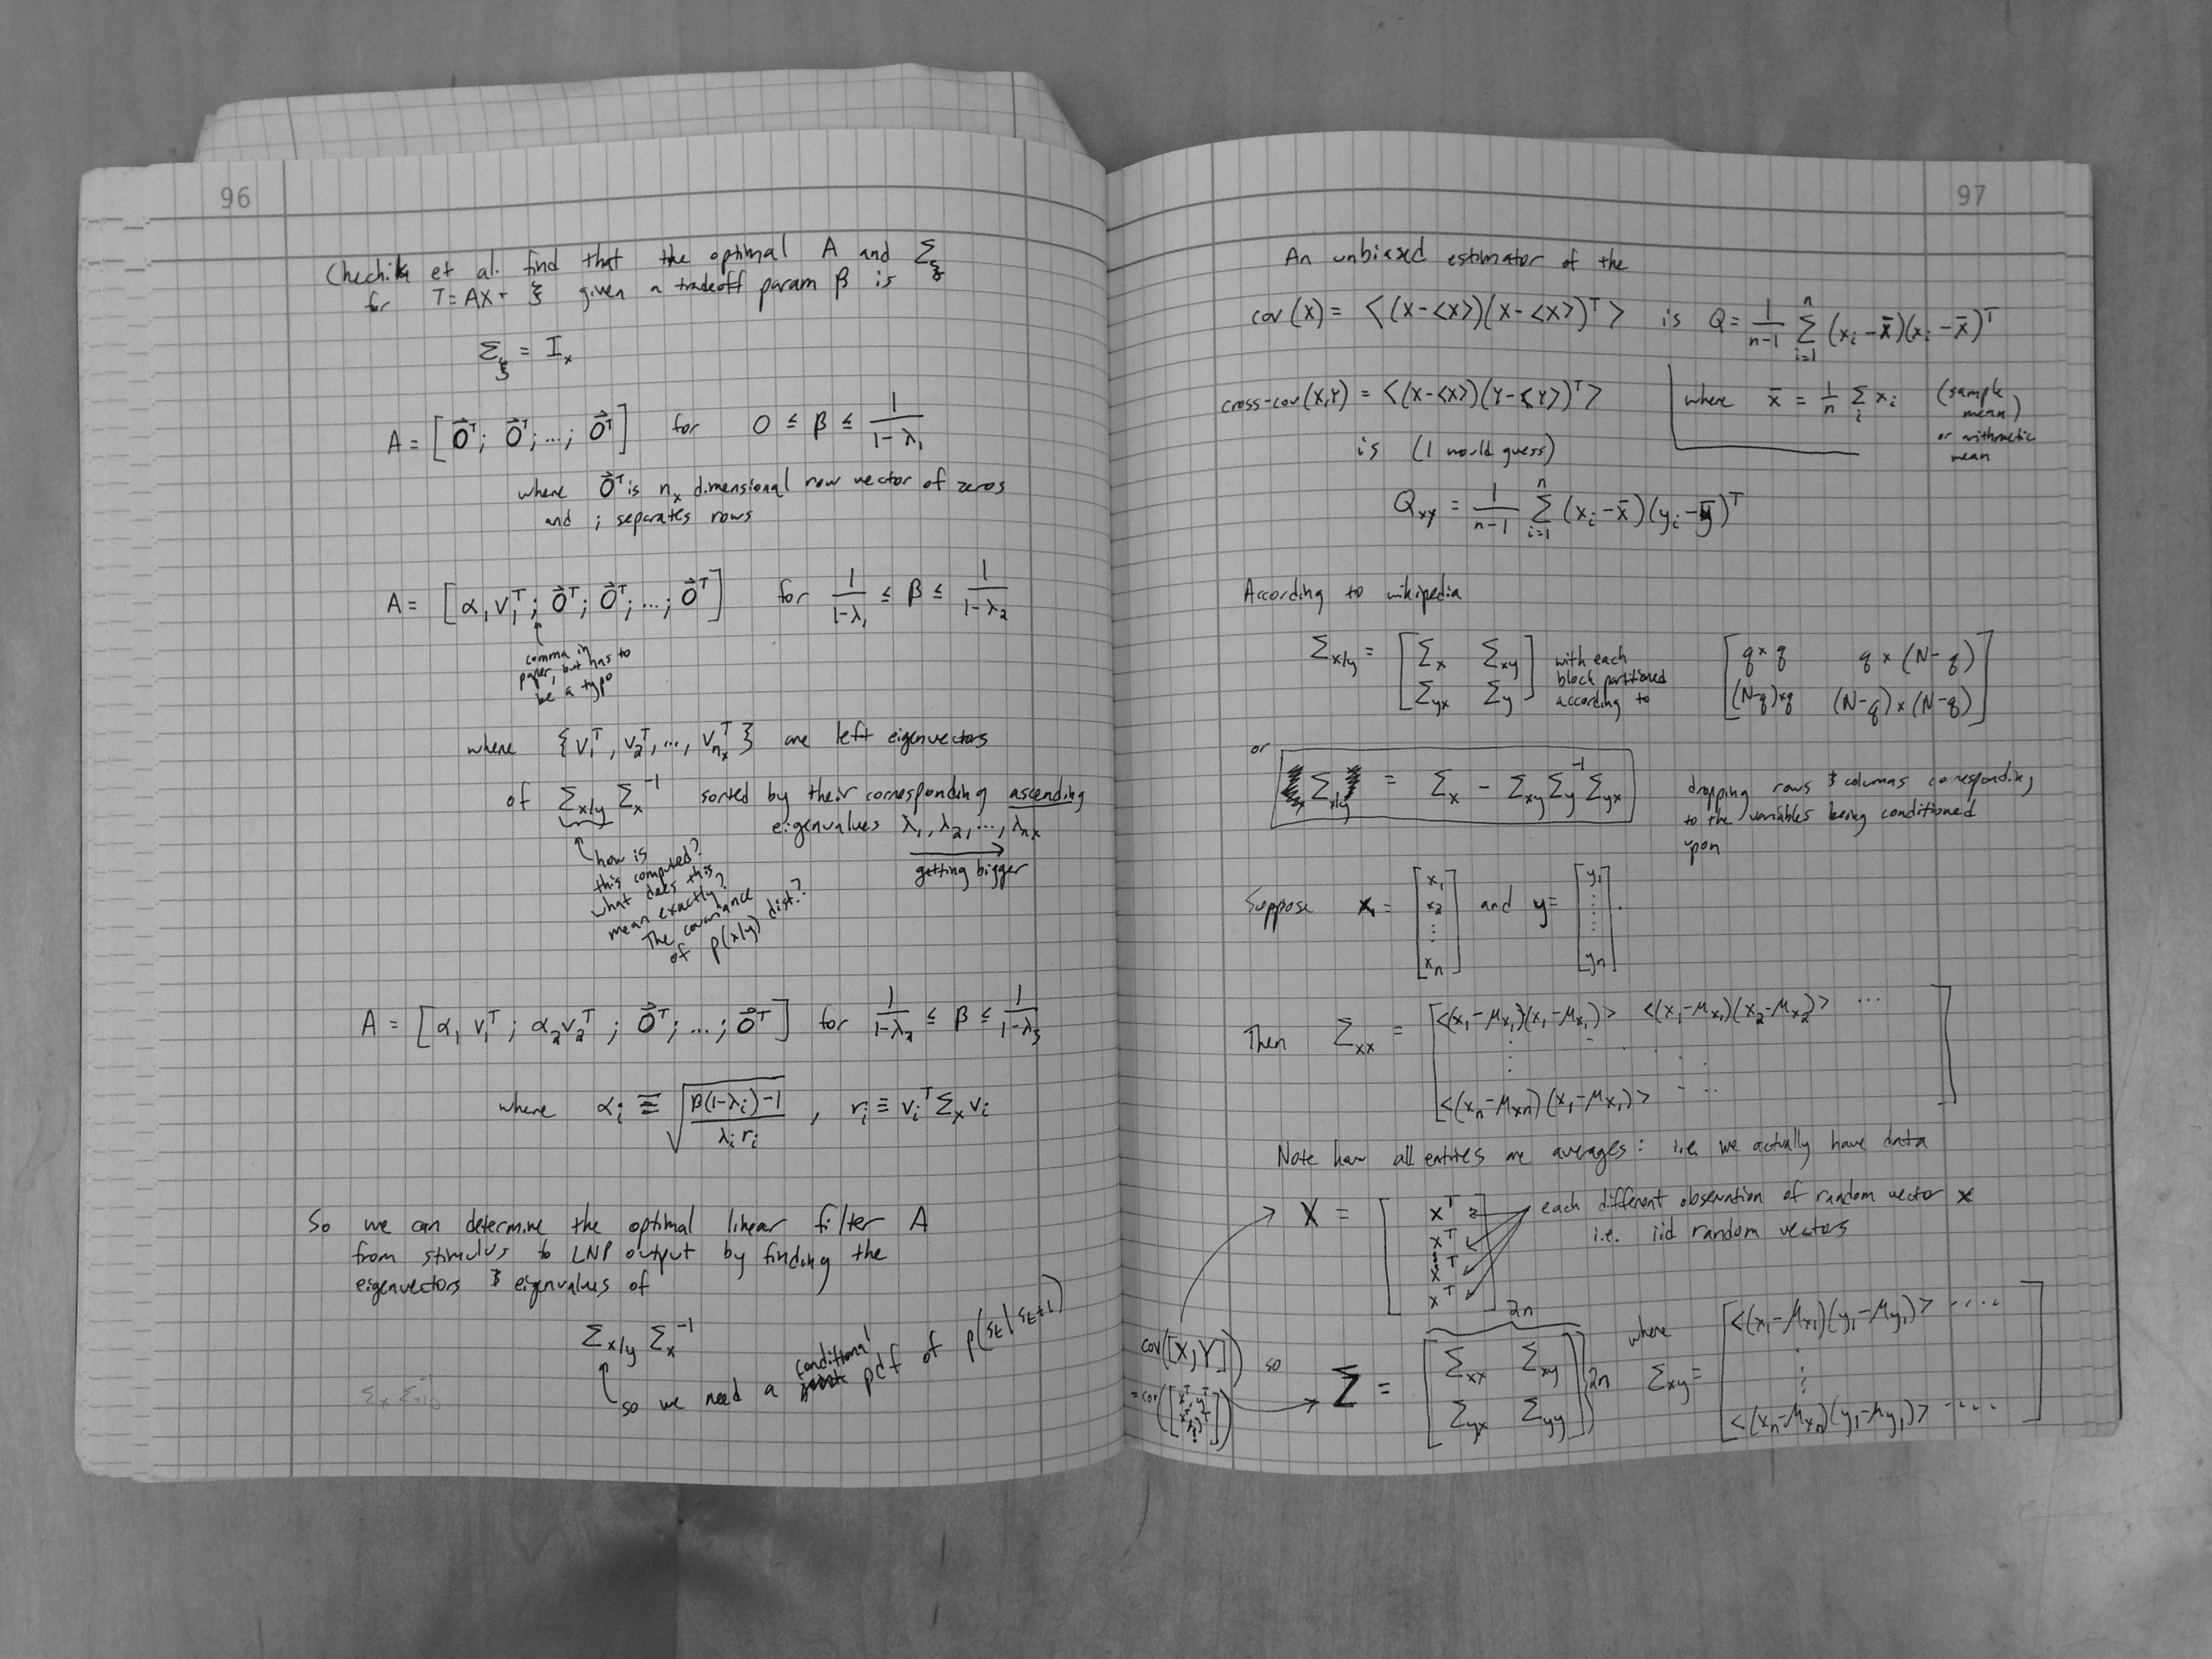 96
Chechik et al. find that the optimal A and Σ_ξ
for T=AX+ξ given a tradeoff param β is
Σ_ξ = I_x
A = [0⃗ᵀ; 0⃗ᵀ; ...; 0⃗ᵀ] for 0 ≤ β ≤ 1/(1-λ₁)
where 0⃗ᵀ is n_x dimensional row vector of zeros
and ; separates rows
A = [α₁v₁ᵀ; 0⃗ᵀ; 0⃗ᵀ; ...; 0⃗ᵀ] for 1/(1-λ₁) ≤ β ≤ 1/(1-λ₂)
comma in
paper, but has to
be a typo
where {v₁ᵀ, v₂ᵀ, ..., v_{n_x}ᵀ} are left eigenvectors
of Σ_{x|y} Σ_x⁻¹ sorted by their corresponding ascending
eigenvalues λ₁, λ₂, ..., λ_{n_x}
getting bigger
how is
this computed?
what does this
mean exactly?
The covariance
of p(x|y) dist.?
A = [α₁v₁ᵀ; α₂v₂ᵀ; 0⃗ᵀ; ...; 0⃗ᵀ] for 1/(1-λ₂) ≤ β ≤ 1/(1-λ₃)
where α_i ≡ √((β(1-λ_i)-1)/(λ_i r_i)), r_i ≡ v_iᵀ Σ_x v_i
So we can determine the optimal linear filter A
from stimulus to LNP output by finding the
eigenvectors & eigenvalues of
Σ_{x|y} Σ_x⁻¹
so we need a conditional pdf of p(s_t|s_{t+1})
97
An unbiased estimator of the
cov(X) = <(X-<X>)(X-<X>)ᵀ> is Q = 1/(n-1) Σ_{i=1}^{n} (x_i - x̄)(x_i - x̄)ᵀ
where x̄ = 1/n Σ_i x_i (sample
mean)
or arithmetic
mean
cross-cov(X,Y) = <(X-<X>)(Y-<Y>)ᵀ>
is (I would guess)
Q_xy = 1/(n-1) Σ_{i=1}^{n} (x_i - x̄)(y_i - ȳ)ᵀ
According to wikipedia
Σ_{x|y} = [Σ_x Σ_xy
Σ_yx Σ_y]
with each
block partitioned
according to
[q×q q×(N-q)
(N-q)×q (N-q)×(N-q)]
or
Σ_{x|y} = Σ_x - Σ_xy Σ_y⁻¹ Σ_yx
dropping rows & columns corresponding
to the variables being conditioned
upon
Suppose x = [x₁ x₂ ⋮ x_n] and y = [y₁ ⋮ y_n].
Then Σ_xx = [<(x₁-μ_x₁)(x₁-μ_x₁)> <(x₁-μ_x₁)(x₂-μ_x₂)> ...
<(x_n-μ_xn)(x₁-μ_x₁)> ...]
Note how all entries are averages: i.e. we actually have data
X = [xᵀ
xᵀ
⋮
xᵀ
xᵀ]
each different observation of random vector x
i.e. iid random vectors
cov([X,Y])
so
2n
Σ = [Σ_xx Σ_xy
Σ_yx Σ_yy] 2n
where
Σ_xy = [<(x₁-μ_x₁)(y₁-μ_y₁)> ....
⋮
<(x_n-μ_xn)(y₁-μ_y₁)> ....]